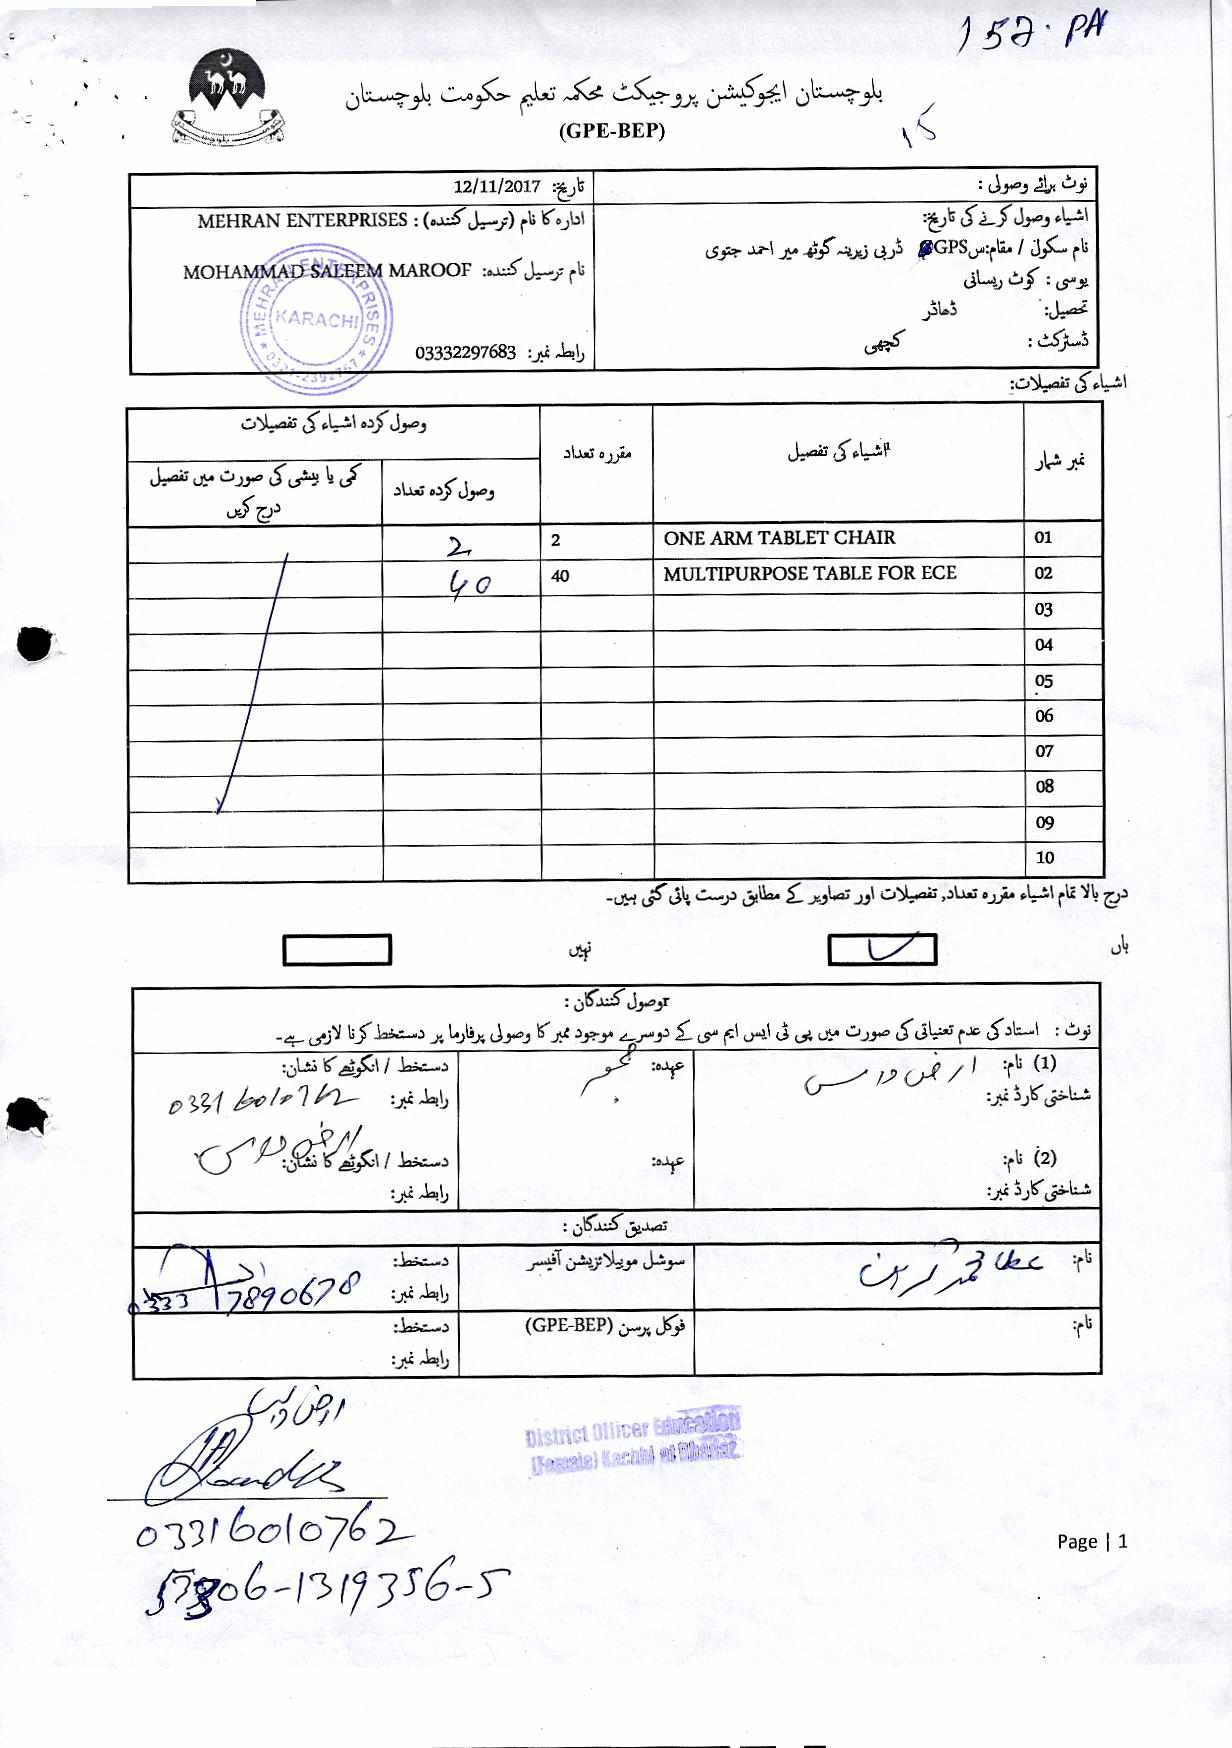 152. PA
بلوچستان ایجوکیشن پروجیکٹ محکمہ تعلیم حکومت بلوچستان
(GPE-BEP)
15
نوٹ برائے وصولی :
تاریخ: 12/11/2017
اشیاء وصول کرنے کی تاریخ:
نام سکول / مقام:س GPS ڈربی زیرینہ گوٹھ میر احمد جتوی
یوسی : کوٹ ریسانی
تحصیل: ڈھاڈر
ڈسٹرکٹ : کچھی
ادارہ کا نام (ترسیل کنندہ) : MEHRAN ENTERPRISES
نام ترسیل کنندہ: MOHAMMAD SALEEM MAROOF
رابطہ نمبر: 03332297683
MEHRAN ENTERPRISES
KARACHI
اشیاء کی تفصیلات:
نمبر شمار اشیاء کی تفصیل مقررہ تعداد وصول کردہ اشیاء کی تفصیلات
وصول کردہ تعداد کمی یا بیشی کی صورت میں تفصیل درج کریں
01 ONE ARM TABLET CHAIR 2 2
02 MULTIPURPOSE TABLE FOR ECE 40 40
03
04
05
06
07
08
09
10
درج بالا تمام اشیاء مقررہ تعداد, تفصیلات اور تصاویر کے مطابق درست پائی گئی ہیں۔
ہاں نہیں
وصول کنندگان :
نوٹ : استاد کی عدم تعنیاتی کی صورت میں پی ٹی ایس ایم سی کے دوسرے موجود ممبر کا وصولی پرفارما پر دستخط کرنا لازمی ہے۔
(1) نام: عہدہ: دستخط / انگوٹھے کا نشان:
شناختی کارڈ نمبر: رابطہ نمبر: 03316010762
(2) نام: عہدہ: دستخط / انگوٹھے کا نشان:
شناختی کارڈ نمبر: رابطہ نمبر:
تصدیق کنندگان :
نام: سوشل موبیلائزیشن آفیسر دستخط:
رابطہ نمبر: 0333 7890678
نام: فوکل پرسن (GPE-BEP) دستخط:
رابطہ نمبر:
District Officer Education
(Female) Kachhi at Dhadar
03316010762
06-1319356-5
Page | 1